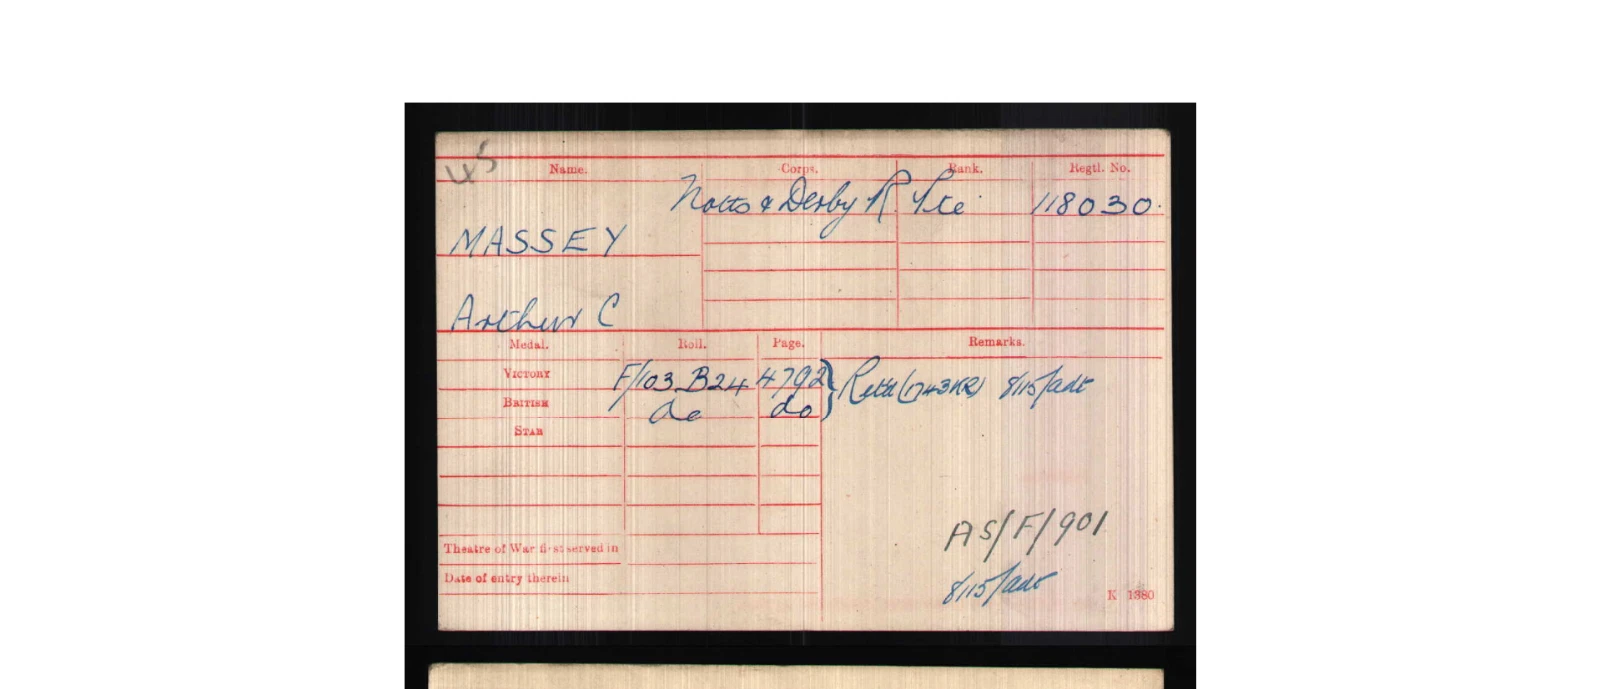 Name. Corps. Rank. Regtl. No.
Notts & Derby R. Pte 118030.
MASSEY
Arthur C
Medal. Roll. Page. Remarks.
Victory F/103.B24 4792 } Retd (1743KR) 8/115/adt
British do do
Star
AS/F/901
Theatre of War first served in
Date of entry therein
8/115/adt
K 1380